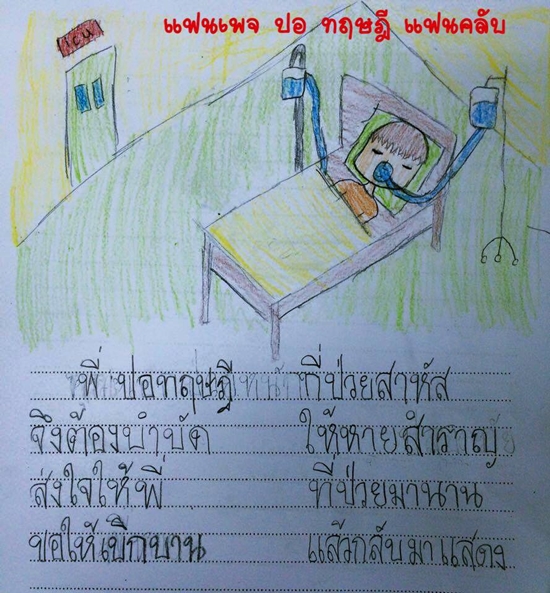 แฟนเพจ ปอ ทฤษฎี แฟนคลับ
icu
พี่ ปอทฤษฎี ที่ป่วยสาหัส
จึงต้องบำบัด ให้หายสำราญ
ส่งใจให้พี่ ที่ป่วยมานาน
ขอให้เบิกบาน แล้วกลับมาแสดง